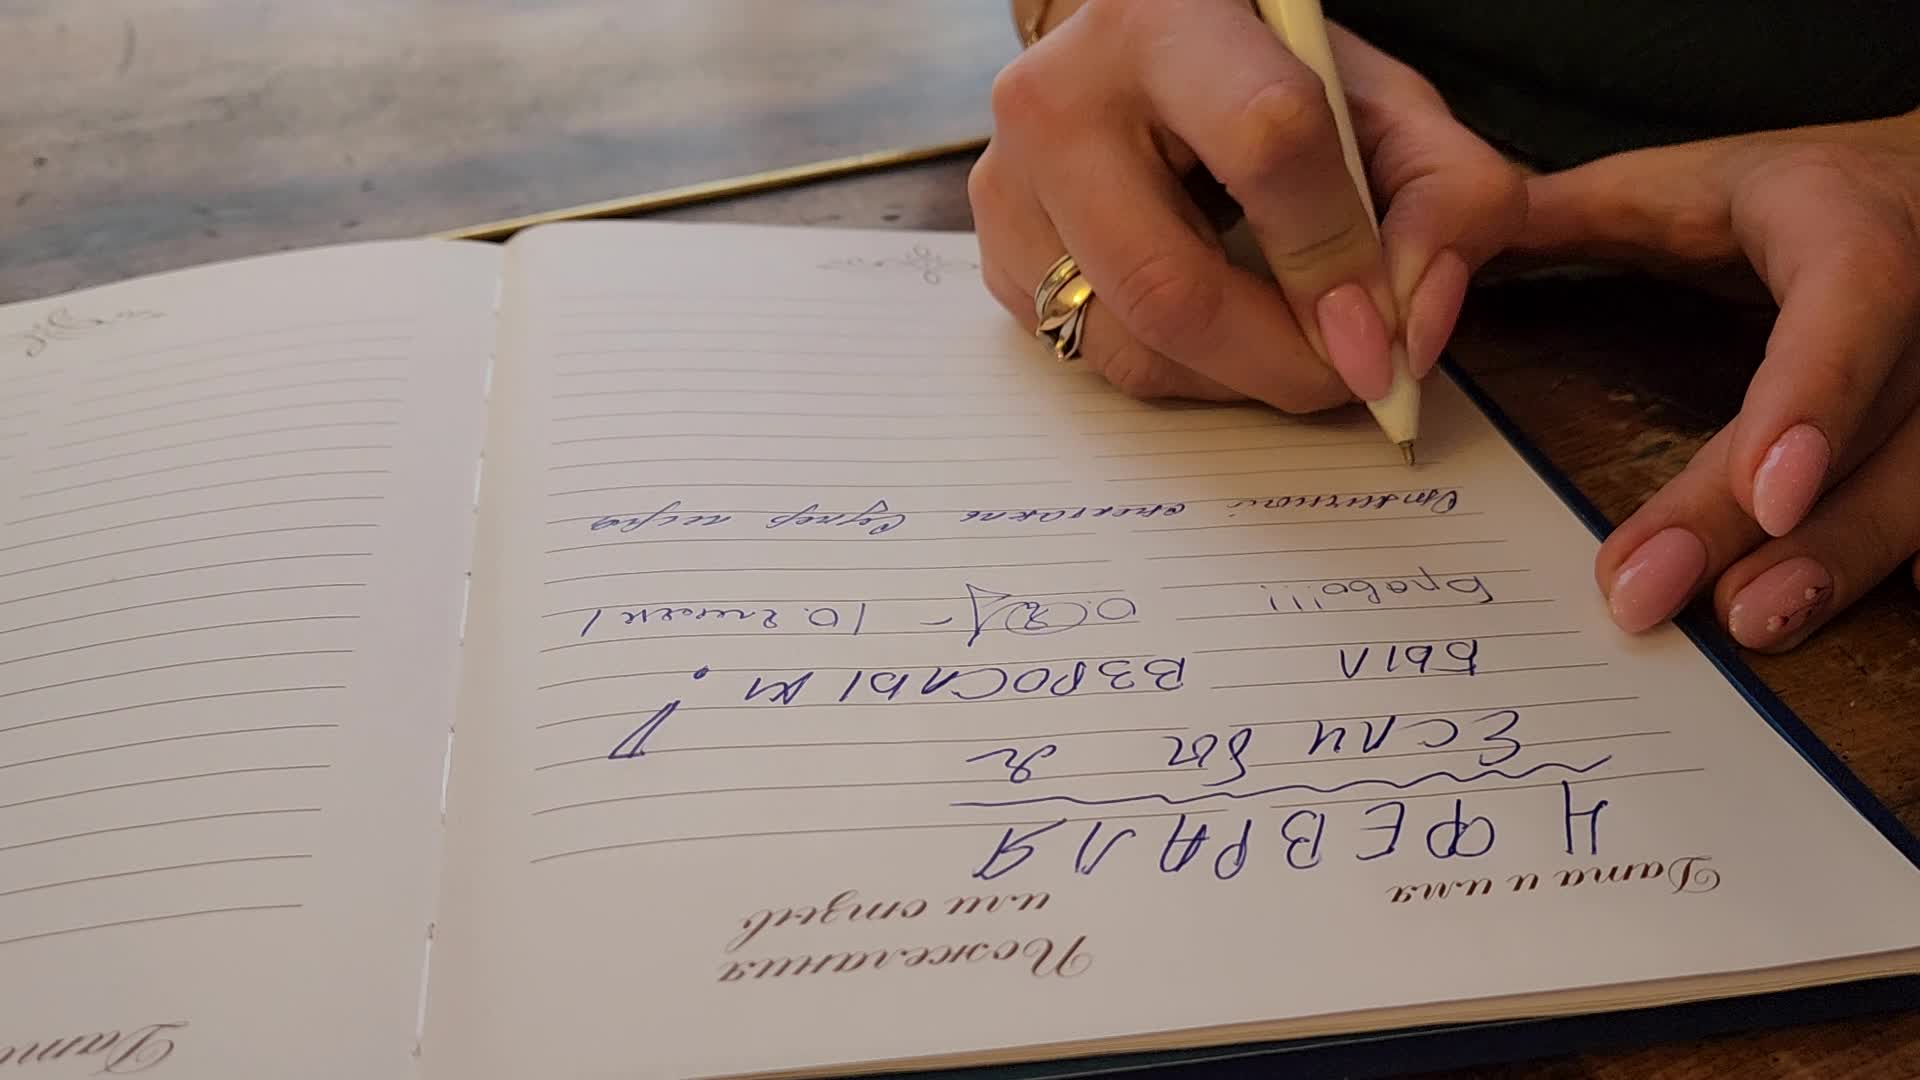 Дата и имя
Пожелания
или отзыв
4 ФЕВРАЛЯ
Если бы я
БЫЛ ВЗРОСЛЫМ!
Браво!!! - 10 
Отличный спектакль Супер игра
Дата